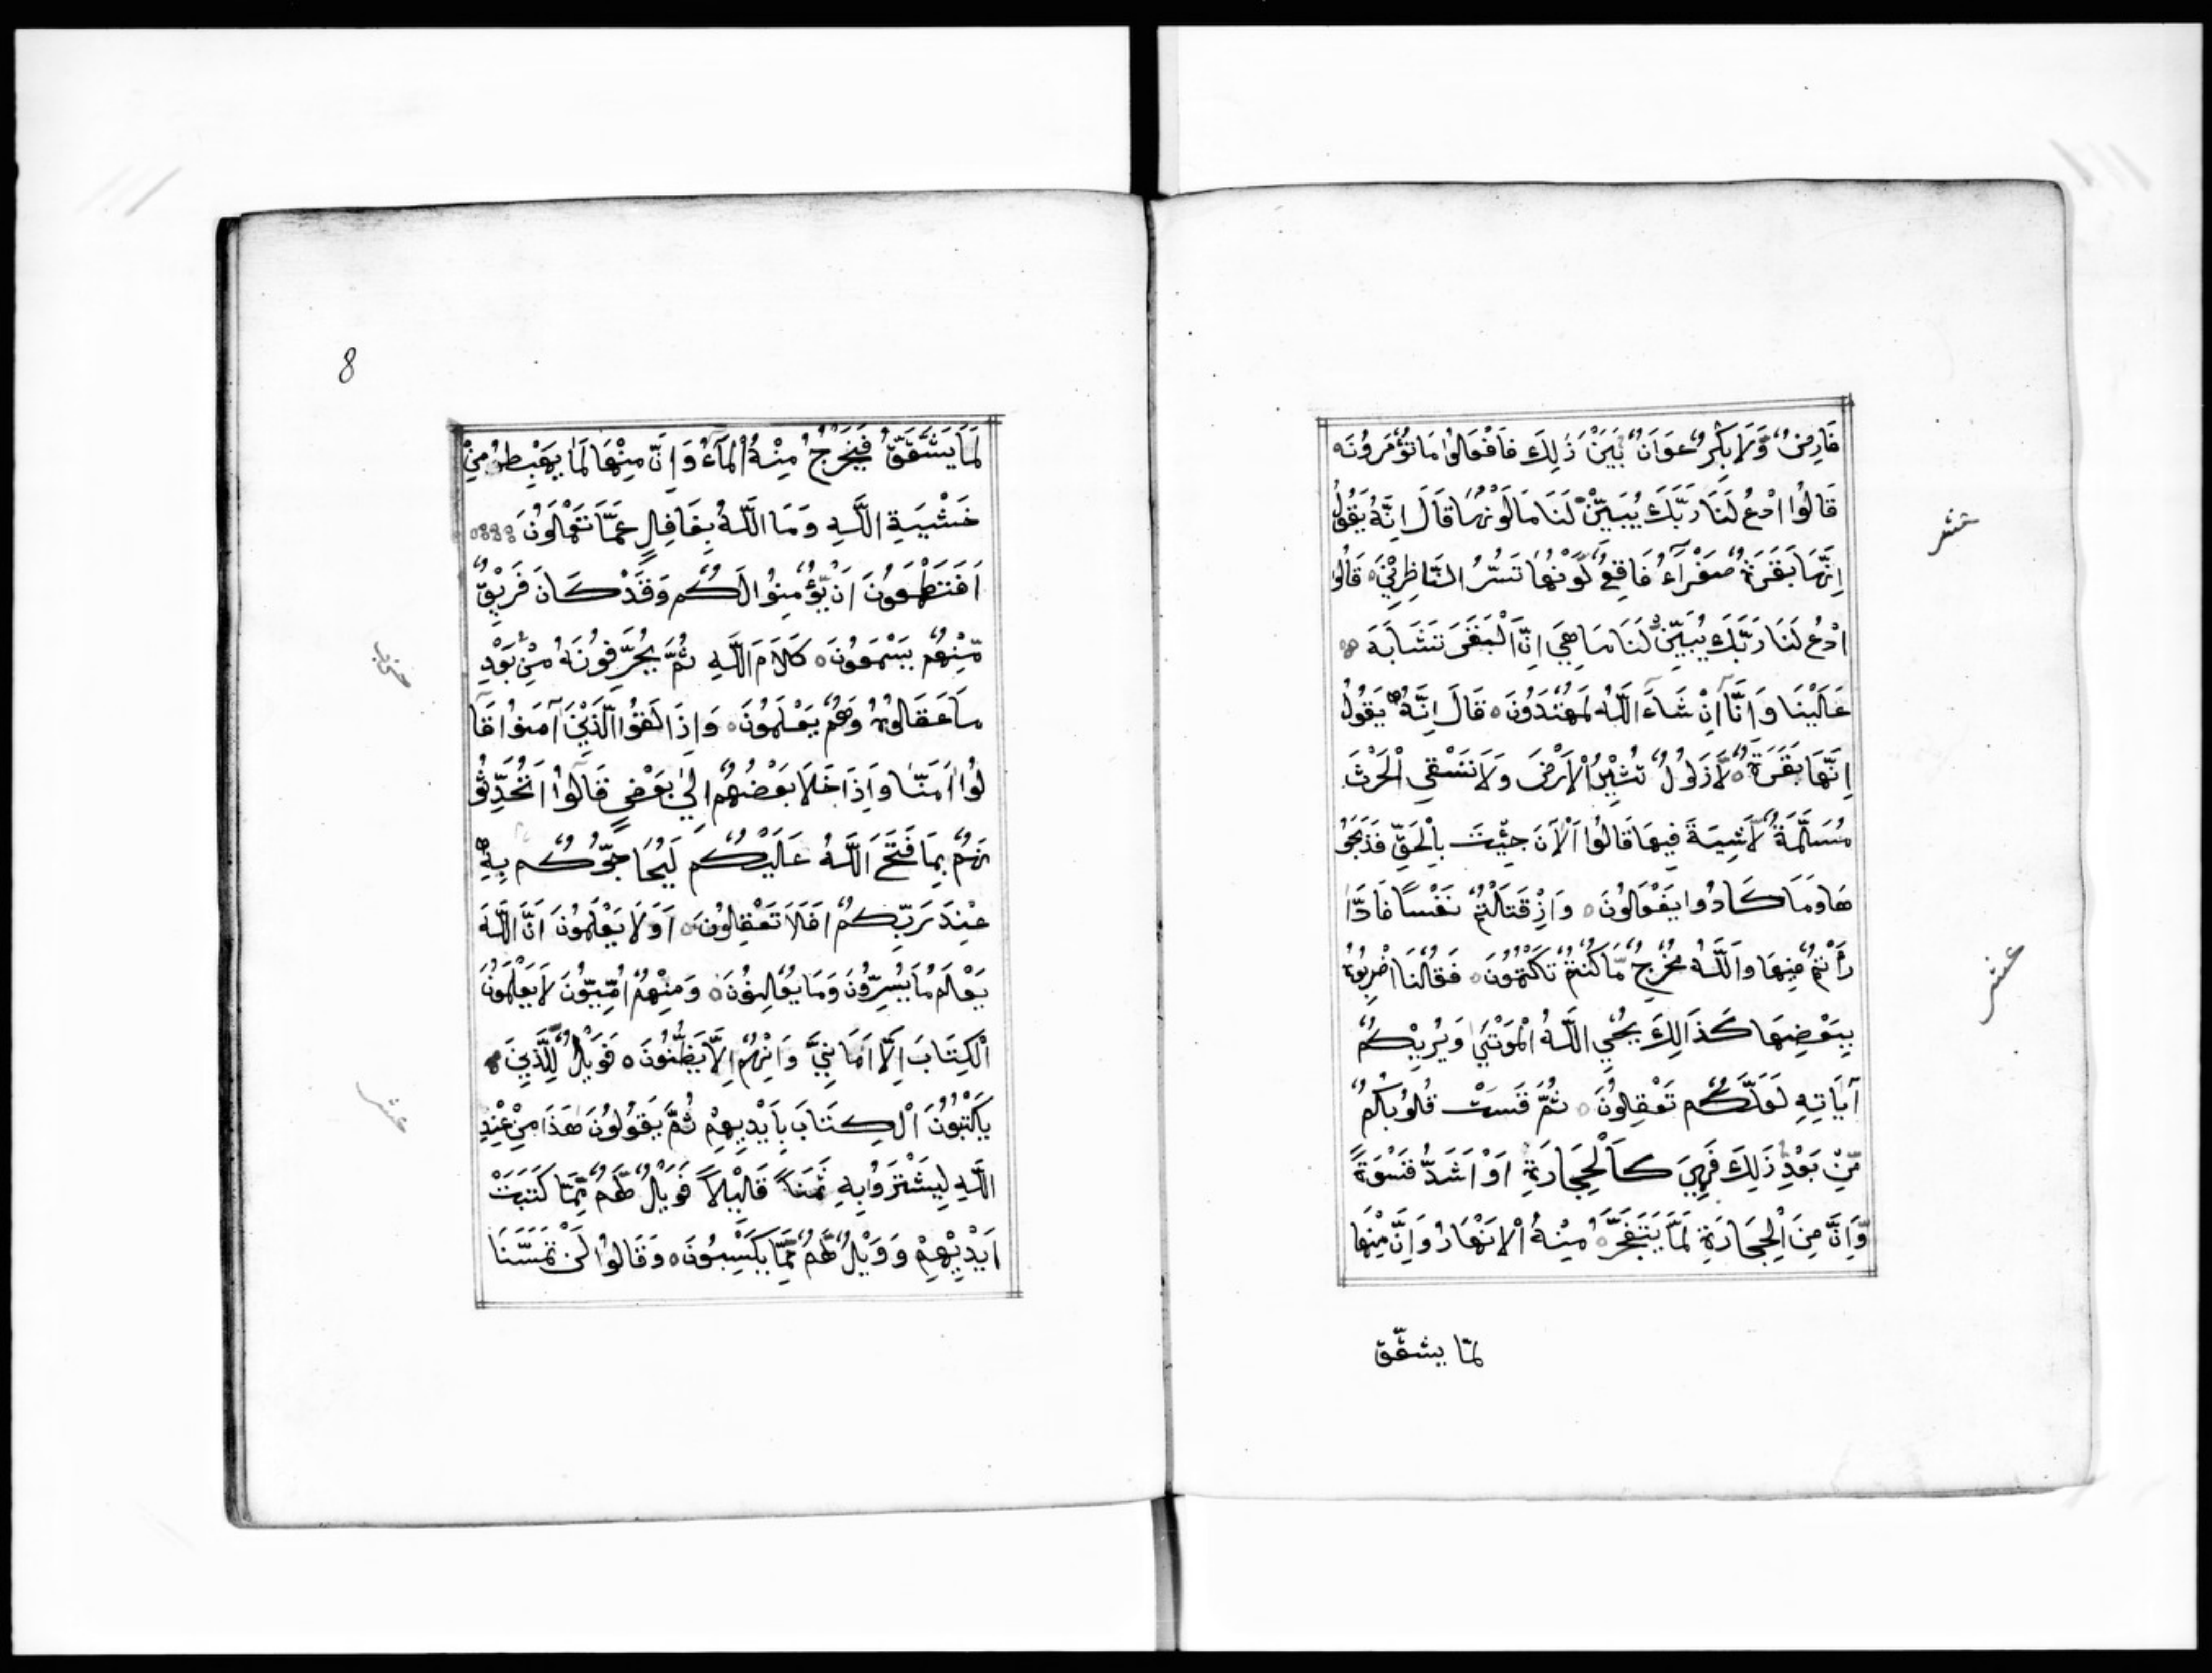 فَارِضٌ وَّلَا بِكْرٌ عَوَانٌ بَيْنَ ذٰلِكَ فَافْعَالُوْا مَا تُؤْمَرُوْنَ ه
قَالُوا ادْعُ لَنَا رَبَّكَ يُبَيِّنْ لَنَا مَا لَوْنُهَا قَالَ اِنَّهُ يَقُوْلُ
اِنَّهَا بَقَرَةٌ صَفْرَآءُ فَاقِعٌ لَوْنُهَا تَسُرُّ النَّاظِرِيْنَ ه قَالُوا
ادْعُ لَنَا رَبَّكَ يُبَيِّنْ لَنَا مَا هِيَ اِنَّ الْبَقَرَ تَشَابَهَ
عَلَيْنَا وَاِنَّآ اِنْ شَآءَ اللّٰهُ لَمُهْتَدُوْنَ ه قَالَ اِنَّهُ يَقُوْلُ
اِنَّهَا بَقَرَةٌ ه لَّا ذَلُوْلٌ تُثِيْرُ الْاَرْضَ وَلَا تَسْقِي الْحَرْثَ
مُسَلَّمَةٌ لَّا شِيَةَ فِيهَا قَالُوا اَلْآنَ جِئْتَ بِالْحَقِّ فَذَبَحُوْ
هَا وَمَا كَادُوا يَفْعَالُوْنَ ه وَاِذْ قَتَالْتُمْ نَفْسًا فَادّٰا
رَأْتُمْ فِيْهَا وَاللّٰهُ مُخْرِجٌ مَّا كُنْتُمْ تَكْتُمُوْنَ ه فَقُلْنَا اضْرِبُوْهُ
بِبَعْضِهَا كَذَالِكَ يُحْيِ اللّٰهُ الْمَوْتٰى وَيُرِيْكُمْ
آيَاتِهِ لَعَلَّكُمْ تَعْقِلُوْنَ ه ثُمَّ قَسَتْ قُلُوْبُكُمْ
مِّنْ بَعْدِ ذٰلِكَ فَهِيَ كَالْحِجَارَةِ اَوْ اَشَدُّ قَسْوَةً
وَّاِنَّ مِنَ الْحِجَارَةِ لَمَّا يَتَفَجَّرُ ه مِنْهُ الْاَنْهَارُ وَاِنَّ مِنْهَا
لمّا يشقّق
عشر
عشر
8
لَمَّا يَشَّقَّقُ فَيَخْرُجُ مِنْهُ الْمَآءُ وَاِنَّ مِنْهَا لَمَا يَهْبِطُ مِنْ
خَشْيَةِ اللّٰهِ وَمَا اللّٰهُ بِغَافِلٍ عَمَّا تَعْمَلُوْنَ ه
اَفَتَطْمَعُوْنَ اَنْ يُّؤْمِنُوْا لَكُمْ وَقَدْ كَانَ فَرِيْقٌ
مِّنْهُمْ يَسْمَعُوْنَ ه كَلَامَ اللّٰهِ ثُمَّ يُحَرِّفُوْنَهُ مِنْ بَعْدِ
مَا عَقَالُوْهُ وَهُمْ يَعْلَمُوْنَ ه وَاِذَا لَقُوا الَّذِيْنَ آمَنُوْا قَا
لُوْا اٰمَنَّا وَاِذَا خَلَا بَعْضُهُمْ اِلٰى بَعْضٍ قَالُوْا اَتُحَدِّثُوْ
نَهُمْ بِمَا فَتَحَ اللّٰهُ عَلَيْكُمْ لِيُحَاجُّوْكُمْ بِهِ
عِنْدَ رَبِّكُمْ اَفَلَا تَعْقِلُوْنَ ه اَوَلَا يَعْلَمُوْنَ اَنَّ اللّٰهَ
يَعْلَمُ مَا يُسِرُّوْنَ وَمَا يُعْلِنُوْنَ ه وَمِنْهُمْ اُمِّيُّوْنَ لَا يَعْلَمُوْنَ
الْكِتَابَ اِلَّا اَمَانِيَّ وَاِنْ هُمْ اِلَّا يَظُنُّوْنَ ه فَوَيْلٌ لِّلَّذِيْنَ
يَكْتُبُوْنَ الْكِتَابَ بِاَيْدِيهِمْ ثُمَّ يَقُوْلُوْنَ هٰذَا مِنْ عِنْدِ
اللّٰهِ لِيَشْتَرُوْا بِهِ ثَمَنًا قَلِيْلًا فَوَيْلٌ لَّهُمْ مِّمَّا كَتَبَتْ
اَيْدِيْهِمْ وَوَيْلٌ لَّهُمْ مِّمَّا يَكْسِبُوْنَ ه وَقَالُوْا لَنْ تَمَسَّنَا
عشر